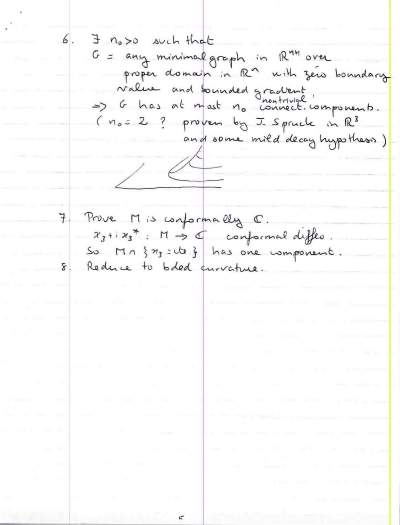 6. ∃ n₀>0 such that
G = any minimal graph in ℝⁿ⁺¹ over
proper domain in ℝⁿ with zero boundary
value and bounded gradient,
⇒ G has at most n₀ nontrivial connect. components.
( n₀ = 2 ? proven by J. Spruck in ℝ³
and some mild decay hypothesis )
7. Prove M is conformally ℂ.
x₃+ix₃* : M → ℂ conformal diffeo.
So M∩{x₃=cte} has one component.
8. Reduce to bded curvature.